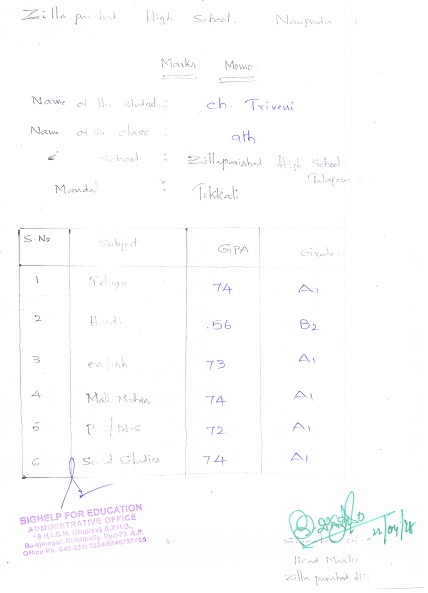 Zilla parishad High School. Naupada
Marks Memo
Name of the student : ch. Triveni
Name of the class : 9th
School : Zillaparishad High School
Mandal : Tekkali
S.No Subject GPA Grade
1 Telugu 74 A1
2 Hindi .56 B2
3 english 73 A1
4 Mathematics 74 A1
5 72 A1
6 Social Studies 74 A1
BIGHELP FOR EDUCATION
ADMINISTRATIVE OFFICE
(Duplex) A.P.H.B.,
Kukatpally, Hyd-72, A.P.
Office Ph: 040-231
22/04/
Head Master
Zilla parishad